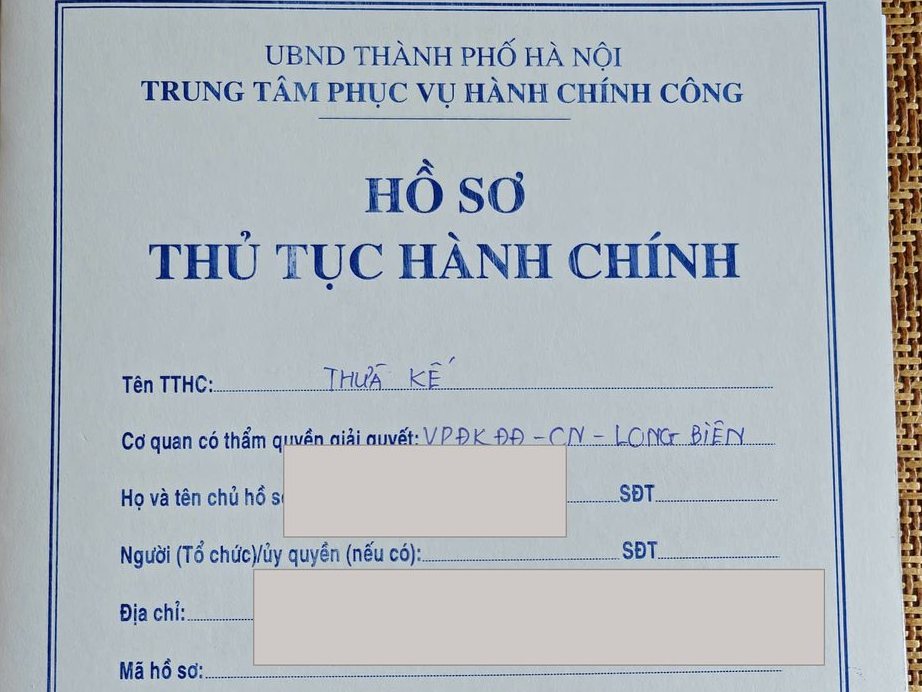 UBND THÀNH PHỐ HÀ NỘI
TRUNG TÂM PHỤC VỤ HÀNH CHÍNH CÔNG
HỒ SƠ
THỦ TỤC HÀNH CHÍNH
Tên TTHC: THỪA KẾ
Cơ quan có thẩm quyền giải quyết: VPĐK ĐĐ - CN - LONG BIÊN
Họ và tên chủ hồ SĐT
Người (Tổ chức)/ủy quyền (nếu có): SĐT
Địa chỉ:
Mã hồ sơ: